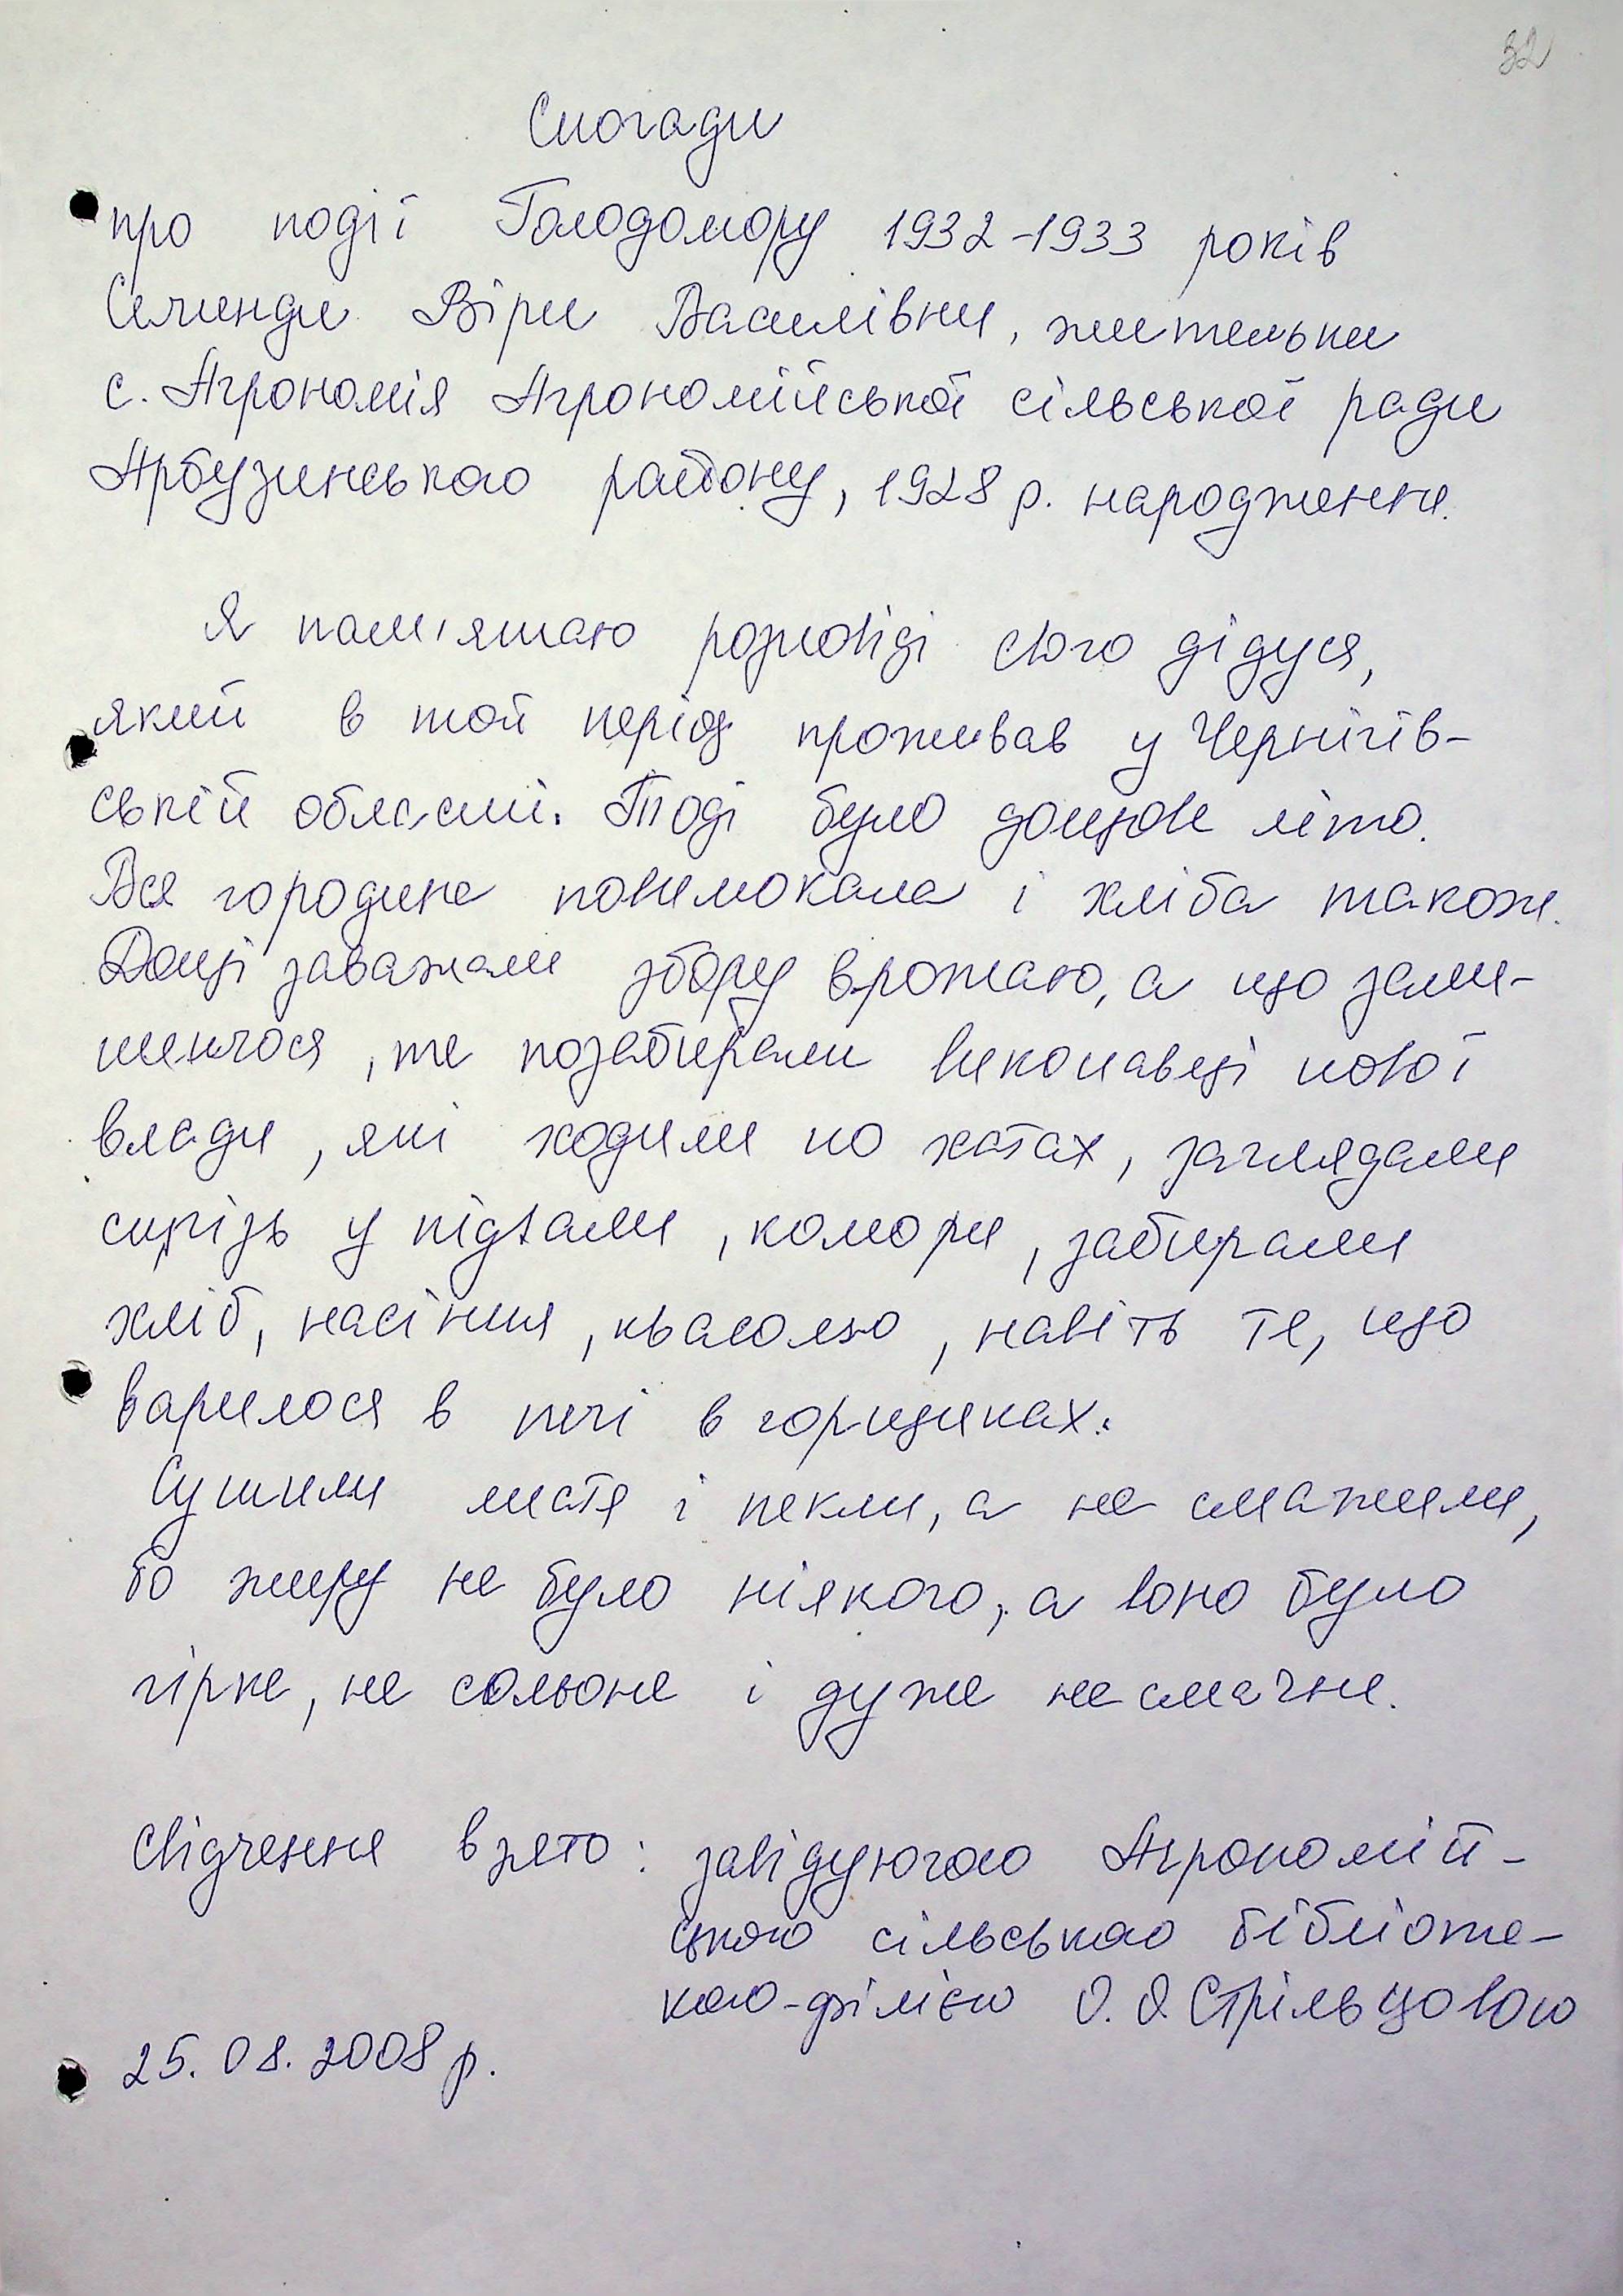 32
Спогади
про події Голодомору 1932-1933 років
Віри Василівни, жительки
с. Агрономія Агрономійської сільської ради
Арбузинського району, 1928 р. народження.
Я пам'ятаю розповіді свого дідуся,
який в той період проживав у Чернігів-
ській області. Тоді було дощове літо.
Вся городина повимокала і хліба також.
Дощі заважали збору врожаю, а що зали-
шилося, те позабирали виконавці нової
влади, які ходили по хатах, заглядали
скрізь у підвали, комори, забирали
хліб, насіння, квасолю, навіть те, що
варилося в печі в горщиках.
Сушили листя і пекли, а не смажили,
бо жиру не було ніякого, а воно було
гірке, не сольоне і дуже несмачне.
Свідчення взято: завідуючою Агрономій-
ською сільською бібліоте-
кою-філією О. О. Стрільцовою
25.08.2008 р.